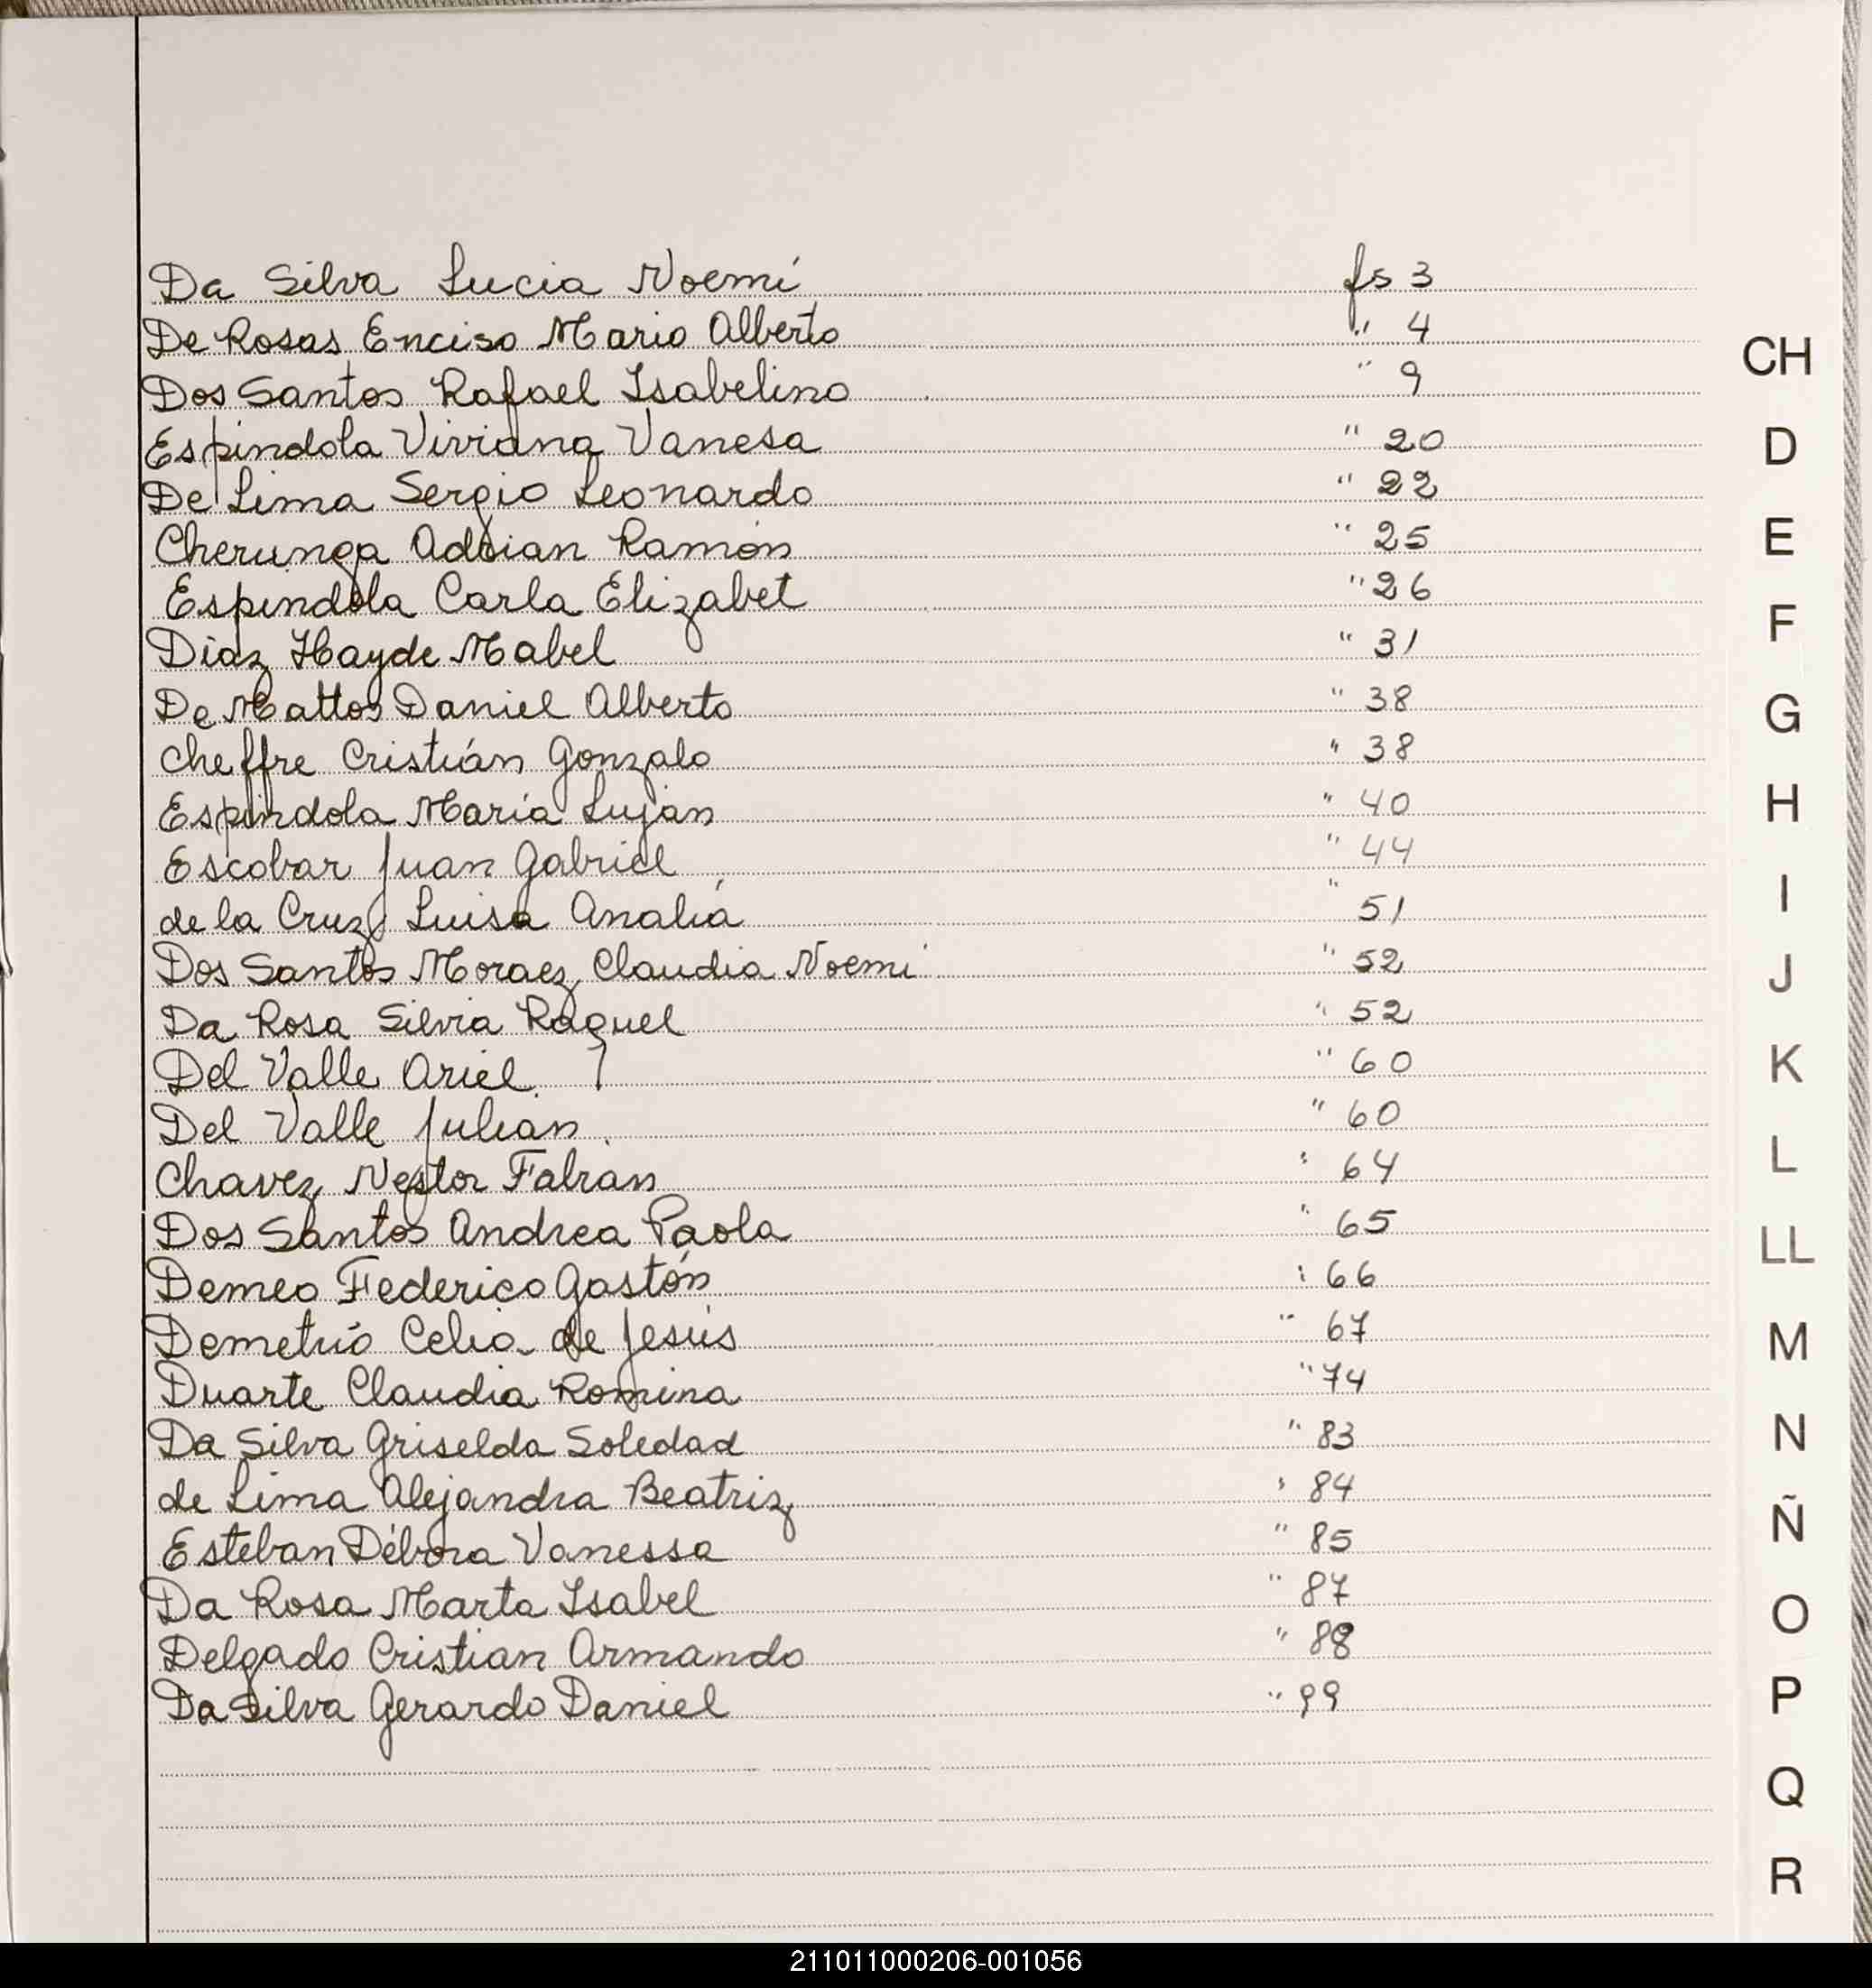 Da Silva Lucia Noemí fs 3
De Rosas Enciso Mario Alberto " 4
Dos Santos Rafael Isabelino " 9
Espindola Viviana Vanesa " 20
De Lima Sergio Leonardo " 22
Cherunga Adrian Ramón " 25
Espindola Carla Elizabet " 26
Diaz Hayde Mabel " 31
De Mattos Daniel Alberto " 38
Cheffre Cristián Gonzalo " 38
Espindola María Luján " 40
Escobar Juan Gabriel " 44
de la Cruz Luisa Analía " 51
Dos Santos Moraez Claudia Noemi " 52
Da Rosa Silvia Raquel " 52
Del Valle Ariel " 60
Del Valle Julián " 60
Chavez Nestor Fabián " 64
Dos Santos Andrea Paola " 65
Demeo Federico Gastón " 66
Demetrio Celia de Jesús " 67
Duarte Claudia Romina " 74
Da Silva Griselda Soledad " 83
de Lima Alejandra Beatriz " 84
Esteban Débora Vanessa " 85
Da Rosa Marta Isabel " 87
Delgado Cristian Armando " 88
Da Silva Gerardo Daniel " 99
CH
D
E
F
G
H
I
J
K
L
LL
M
N
Ñ
O
P
Q
R
211011000206-001056